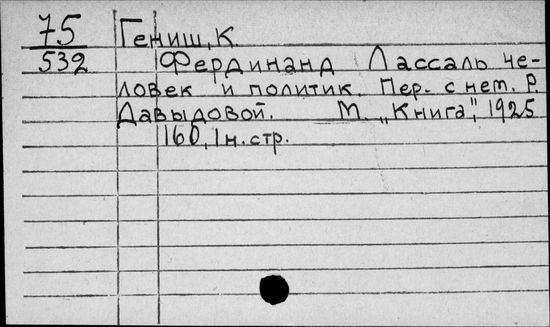 75 Гениш, К.
532 Фердинанд Лассаль че-
ловек и политик. Пер. с нем. Р.
Давыдовой. М. „Книга", 1925
160, 1 н. стр.